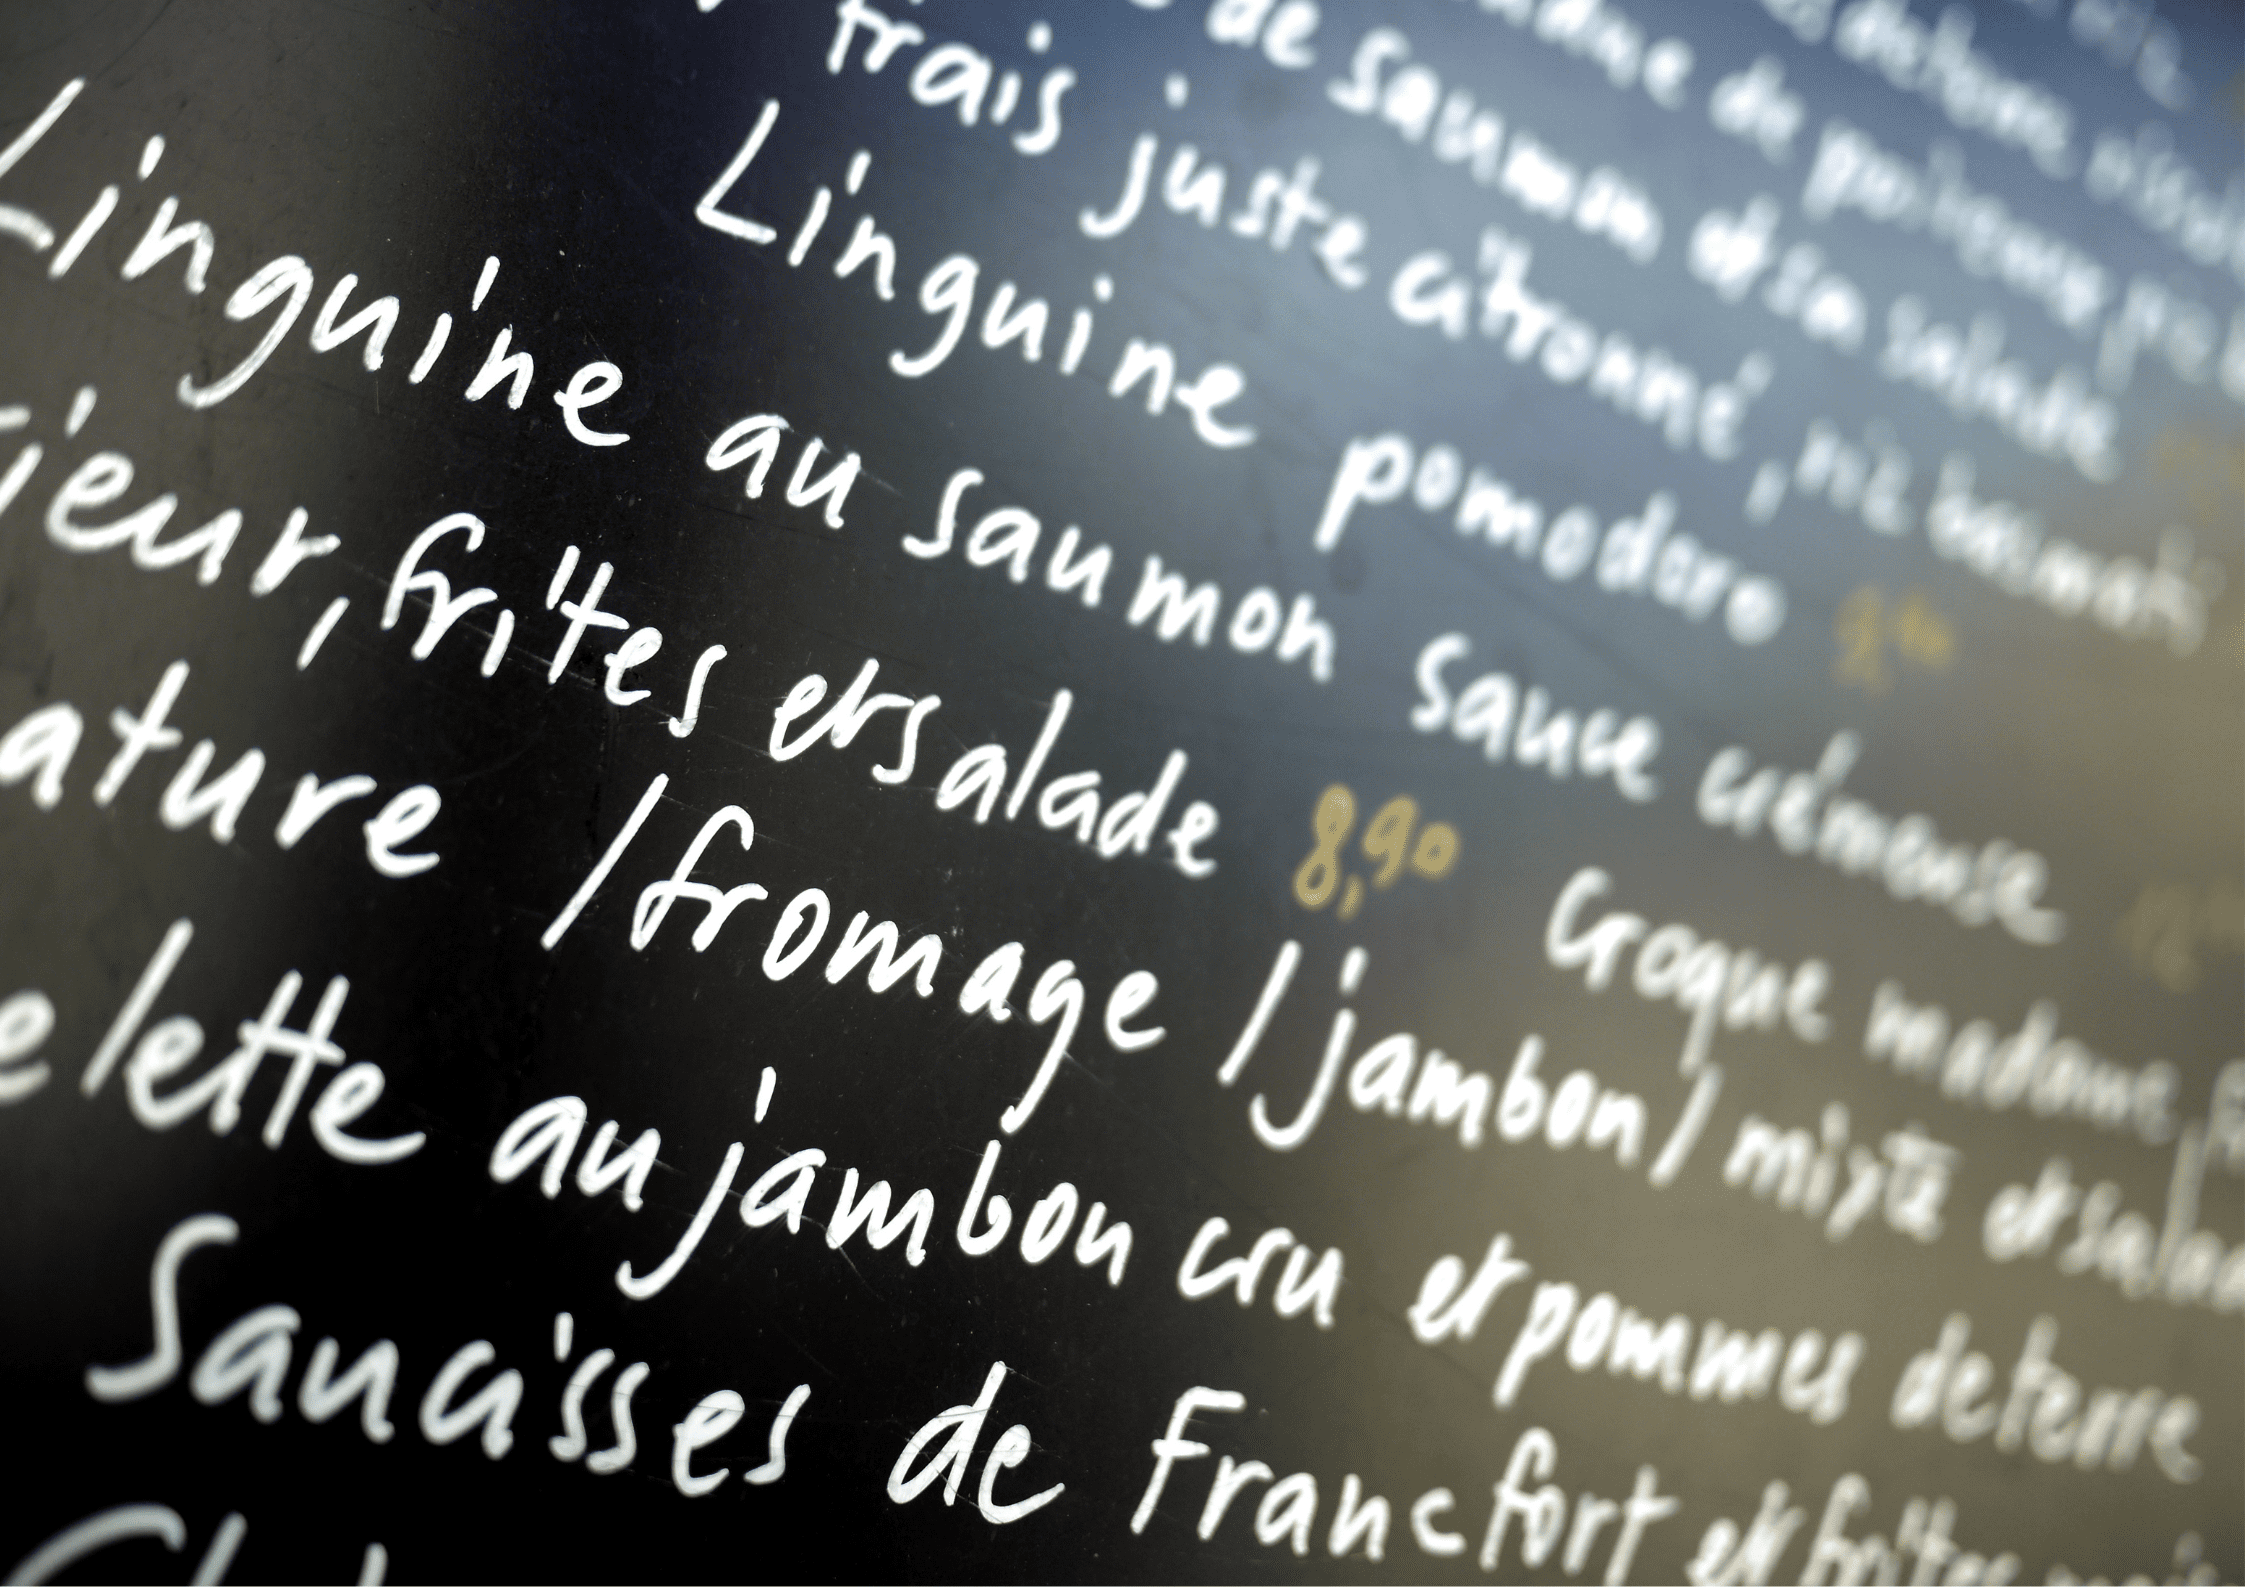 de terre
de
de saumon et sa salade
frais juste citronné, riz basmati
Linguine pomodoro
Linguine au saumon sauce crémeuse
ieur, frites et salade 8,90 Croque madame, f
ature / fromage / jambon / mixte et salad
elette au jambon cru et pommes de terre
Saucisses de Francfort et frites